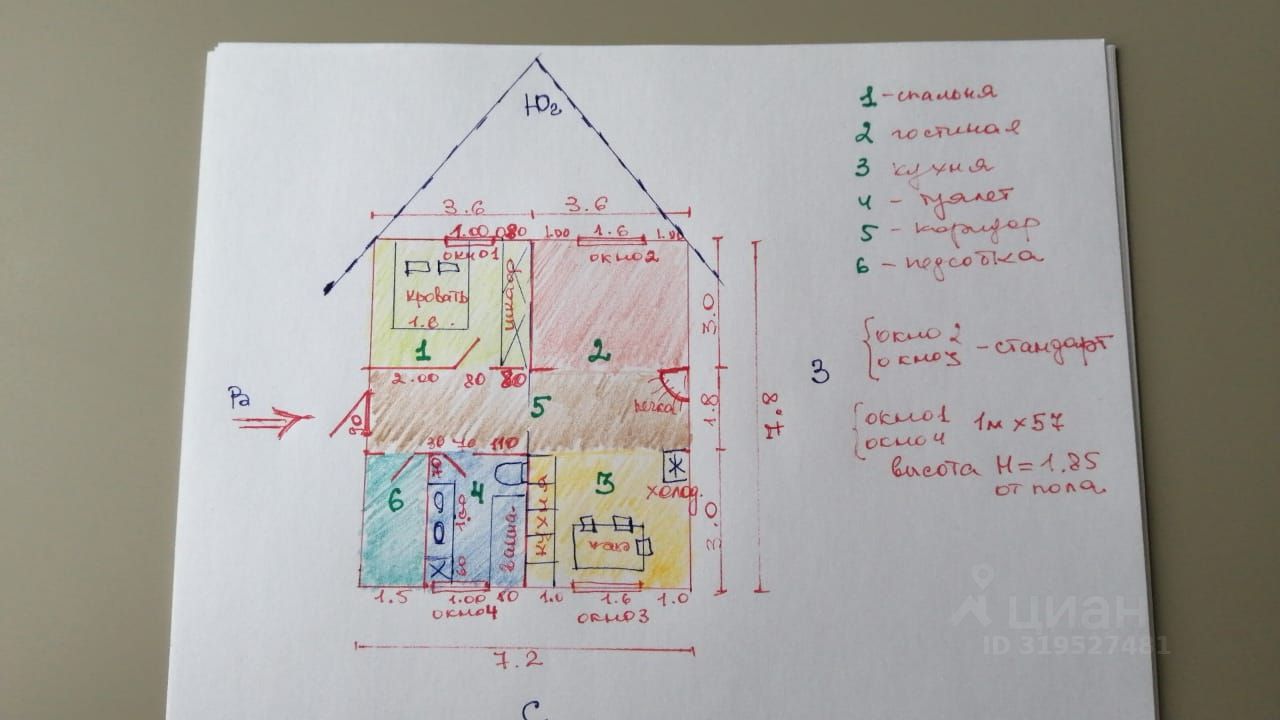 Юг
1 - спальня
2 гостиная
3 кухня
4 - туалет
5 - коридор
6 - подсобка
3.6 3.6
1.00 80 1.00 1.6 1.00
окно1 окно2
кровать
1.6
шкаф
1 2
3.0
{окно 2
окно3 - стандарт
З
2.00 80 80
5
печка
1.8
7.8
90
{окно1
окно4 1м х 57
высота H = 1.85
от пола.
30 70 110
70
6 4 3
холод.
1.00
60
ванна
кухня
3.0
1.5 1.00 80 1.0 1.6 1.0
окно4 окно3
7.2
С
циан
ID 319527481